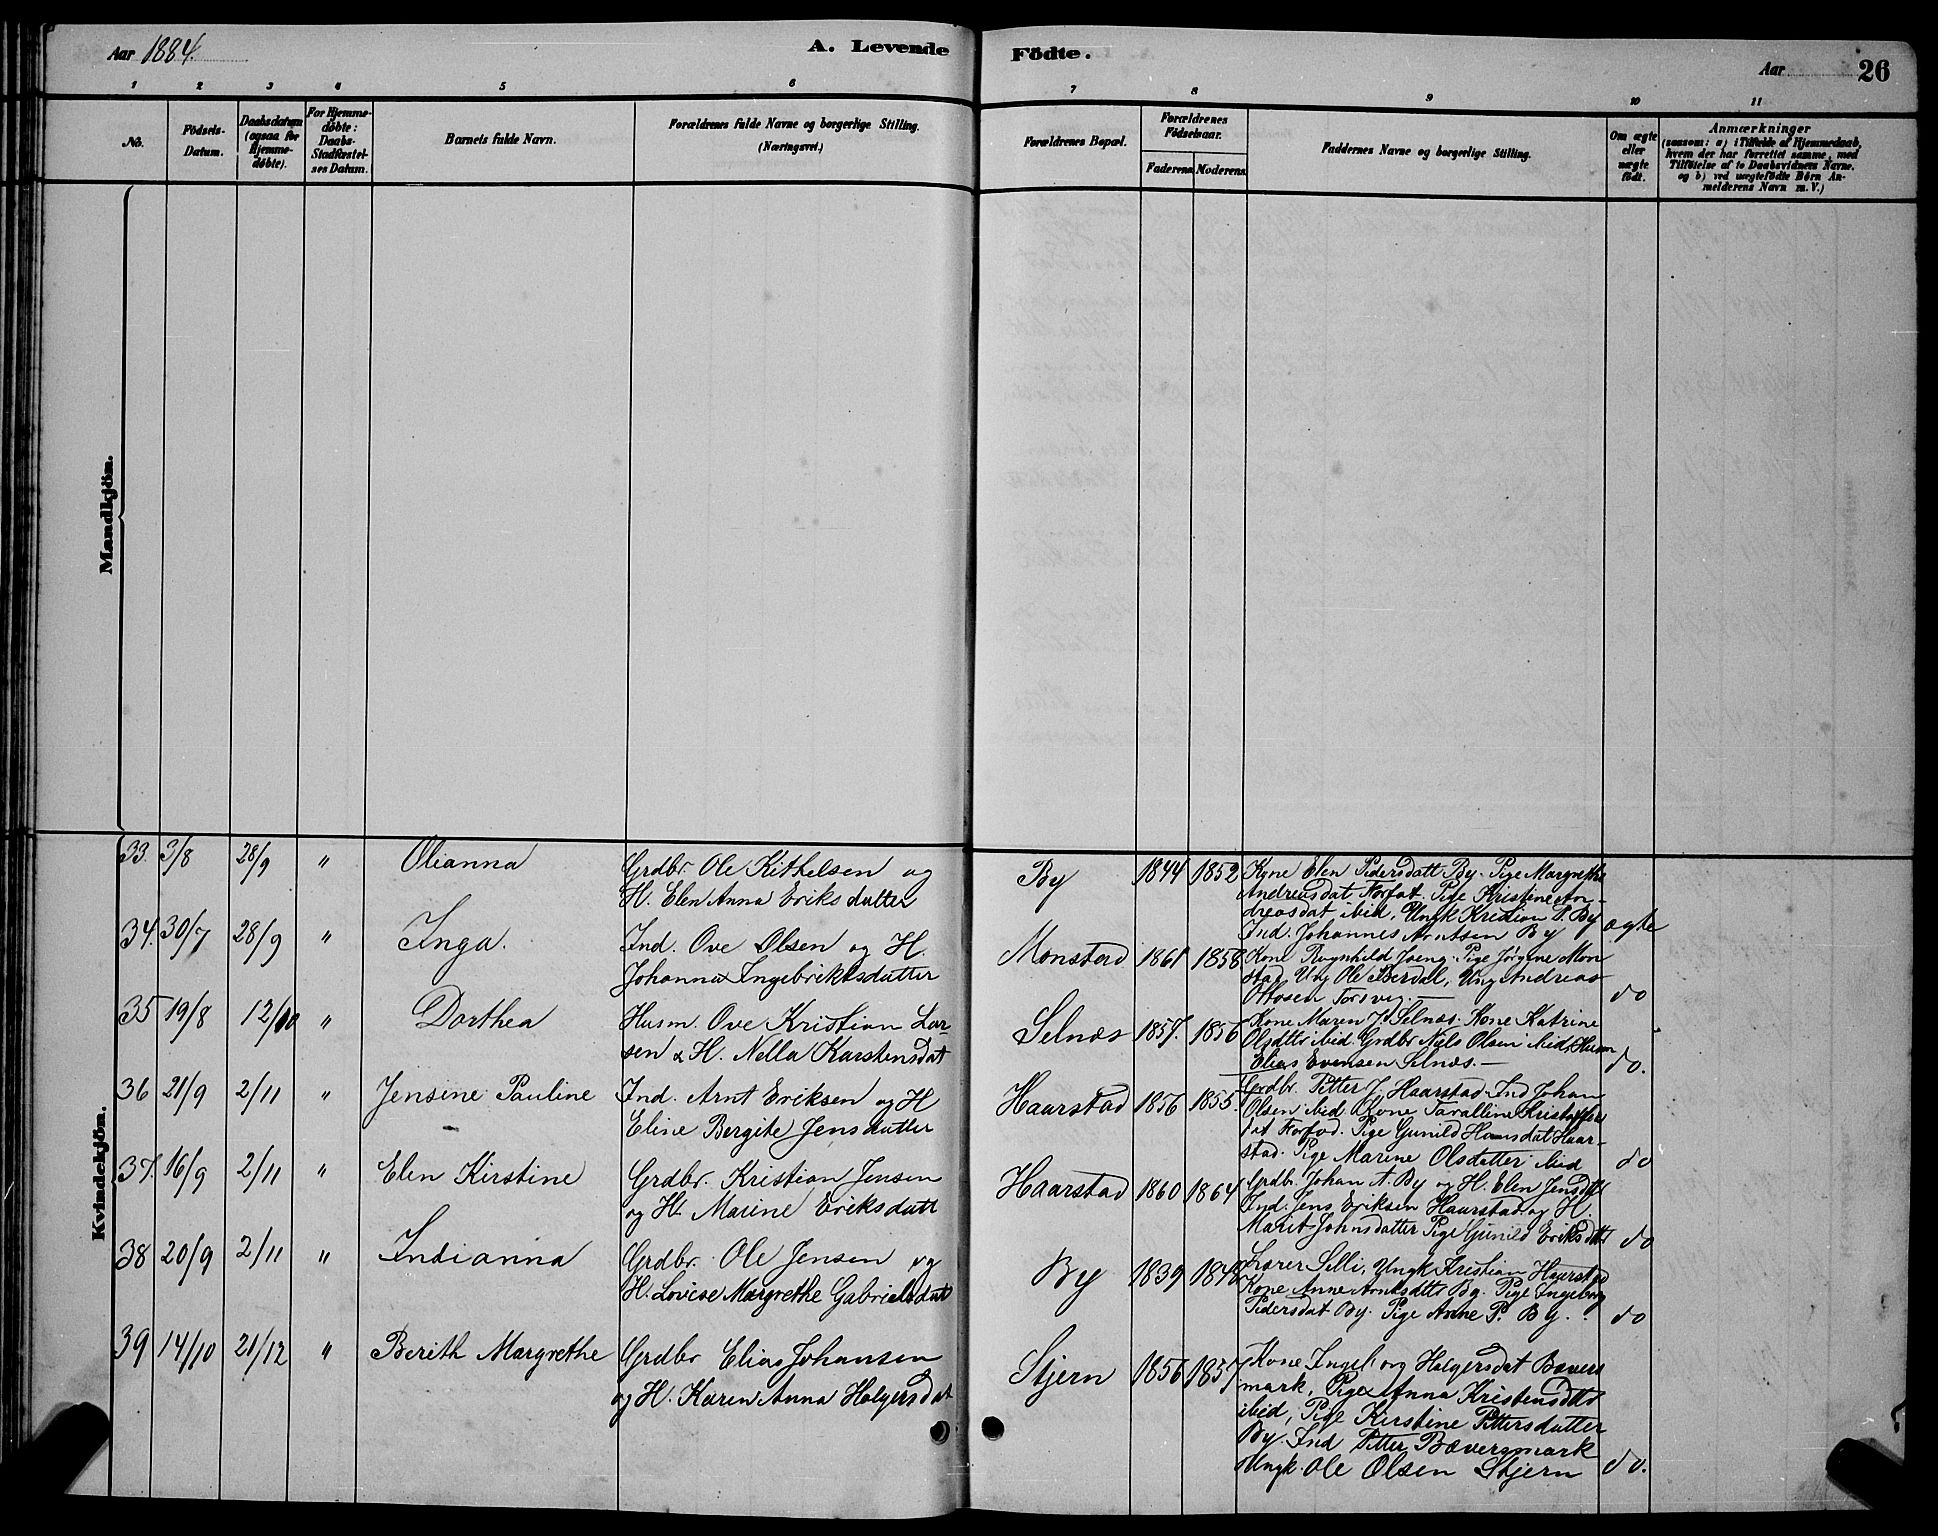 Aar 1884.
A. Levende
Födte.
Aar
26
1 2 3 4 5 6
7 8 9 10 11
No.
Födsels-
Datum.
Daabsdatum
(ogsaa for
Hjemme-
döbte).
For Hjemme-
döbte:
Daabs-
Stadfæstel-
ses Datum.
Barnets fulde Navn.
Forældrenes fulde Navne og borgerlige Stilling.
(Næringsvei.)
Forældrenes Bopæl.
Forældrenes
Födselsaar.
Faderens. Moderens.
Faddernes Navne og borgerlige Stilling.
Om ægte
eller
uægte
födt.
Anmærkninger
(saasom: a) i Tilfælde af Hjemmedaab,
hvem der har forrettet samme, med
Tilföielse af to Daabsvidners Navne,
og b) ved uægtefödte Börn An-
melderens Navn m. V.)
Mandkjön.
Kvindekjön.
33. 3/8 28/9 " Olianna
Grdbr. Ole Kithelsen og
H. Elen Anna Eriksdatter
By 1844 1852
Kone Elen Pedersdatt By. Pige Margrethe
Andreasdat Forfot. Pige Kristine An-
dreasdat ibid, Ungk Kristian P. By
Ind. Johannes Arntsen By
ægte
34. 30/7 28/9 " Inga.
Ind. Ove Olsen og H.
Johanna Ingebriktsdatter
Monstad 1861 1858
Kone Rognhild Joeng. Pige Jørgine Mon
stad, Ung Ole Berdal, Ung Andreas
Ottosen Torsvig. —
do
35 19/8 12/10 " Dorthea
Husm. Ove Kristian Lar-
sen & H. Nella Karstensdat
Selnæs 1857. 1856
Kone Maren J. Selnæs. Kone Katrine
Olsdttr ibid. Grdbr Niels Olsen ibid, Husm
Elias Evensen Selnæs. —
do.
36 21/9 2/11 " Jensine Pauline
Ind. Arnt Eriksen og H
Eline Bergite Jensdatter
Haarstad 1856 1855.
Grdbr. Petter J. Haarstad. Ind Johan
Olsen ibid. Kone Taralline Kristoffers
dat Forfod. Pige Gunild Hansdat Haar-
stad. Pige Marine Olsdatter ibid
do
37. 16/9 2/11 " Elen Kirstine
Grdbr. Kristian Jensen
og H. Marine Eriksdatt
Haarstad 1860 1864
Grdb. Johan A. By og H. Elen Jensdtt
Ind. Jens Eriksen Haarstad og H.
Marit Johnsdatter Pige Gunild Eriksdtt
do
38 20/9 2/11 " Indianna
Grdbr. Ole Jensen og
H. Lovise Margrethe Gabrielsdatt
By 1839
Lærer Selli, Ungk Kristian Haarstad
Kone Anne Arntsdttr By. Pige Ingeborg
Pedersdat By. Pige Anne P. By.
do
39 14/10 21/12 " Berith Margrethe
Grdbr Elias Johansen
og H. Karen Anna Holgersdat
Stjern 1856 1857
Kone Ingeborg Holgersdat Bævers
mark, Pige Anna Kristensdtt
ibid, Pige Kirstine Pettersdatter
By. Ind Petter Bæversmark
Ungk. Ole Olsen Stjern
do.